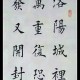 洛陽城裡
萬重復恐
發又開封